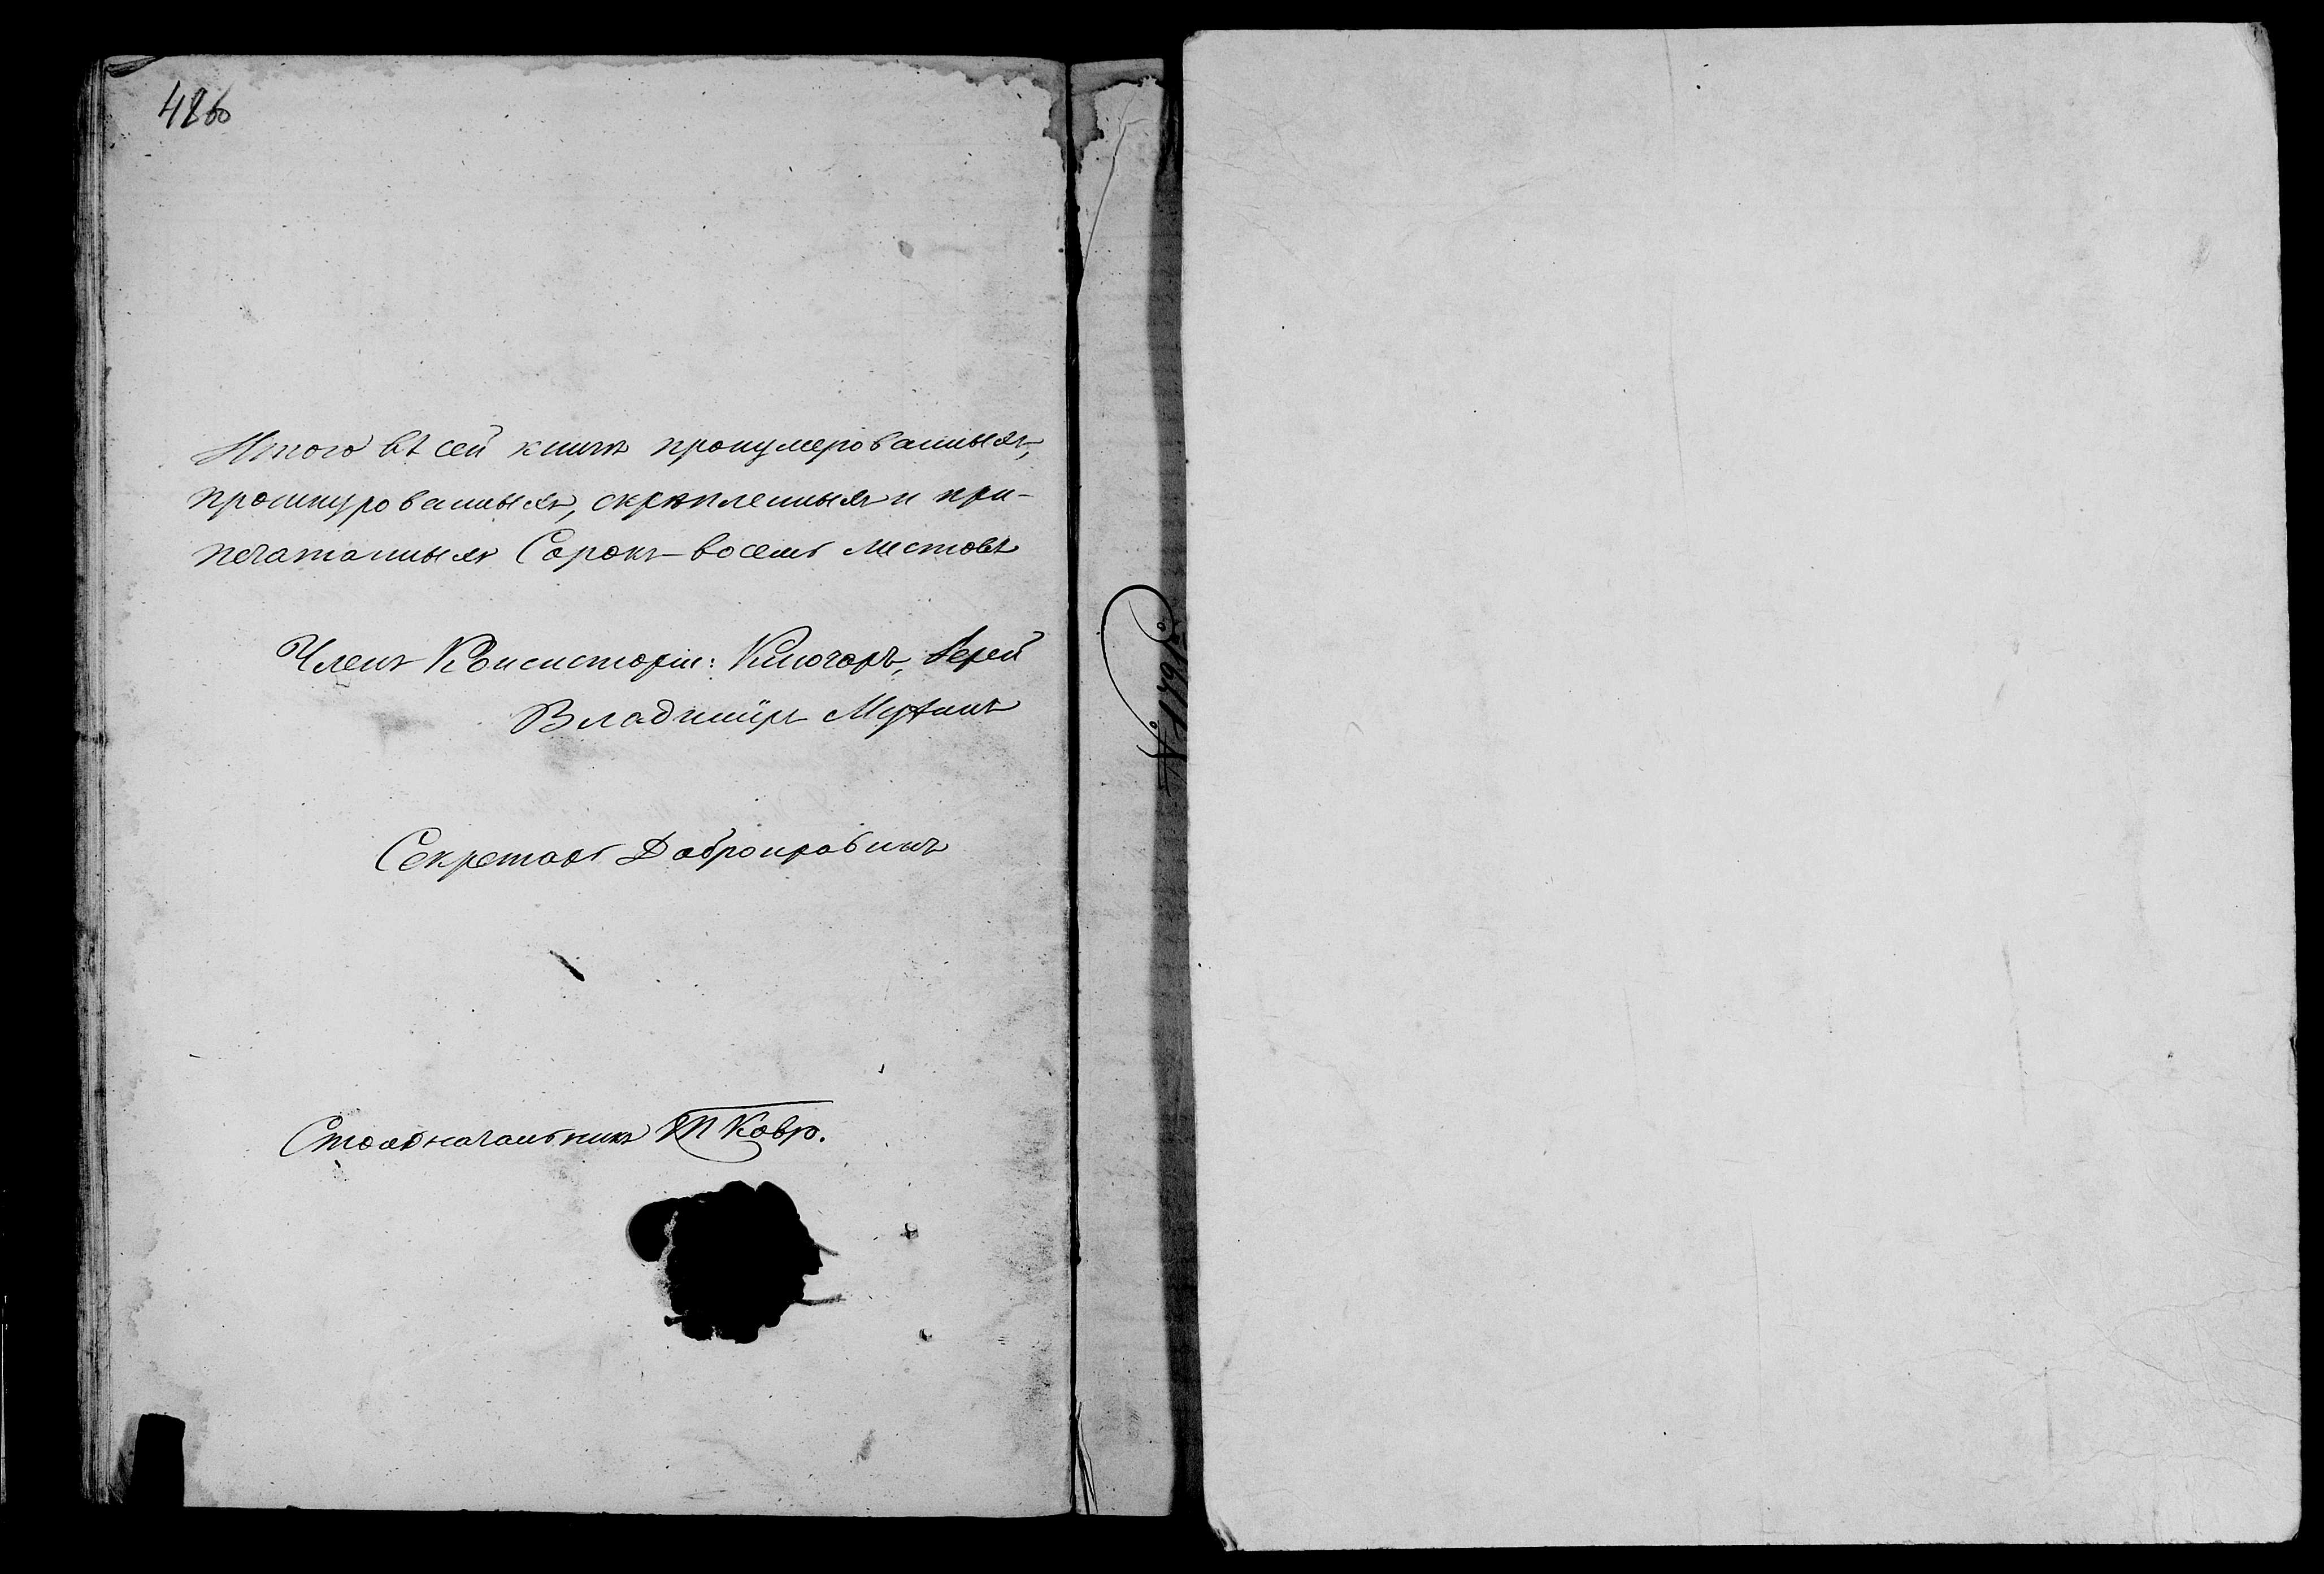 48об
Итого въ сей книгѣ пронумерованныхъ,
прошнурованныхъ, скрѣпленныхъ и при-
печатанныхъ Сорокъ-восемь листовъ
Членъ Консисторіи: Ключарь, Іерей
Владиміръ
Секретарь Добронравинъ
Столоначальникъ